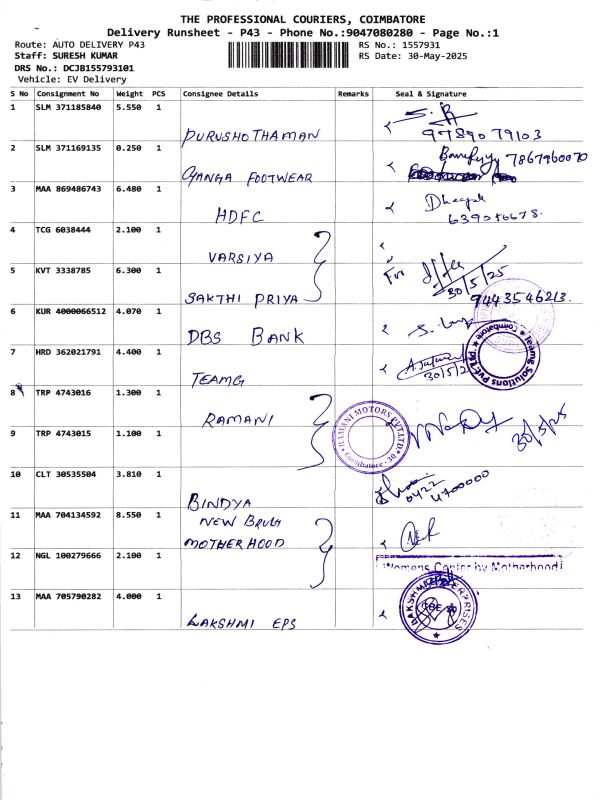 THE PROFESSIONAL COURIERS, COIMBATORE
Delivery Runsheet - P43 - Phone No.:9047080280 - Page No.:1
Route: AUTO DELIVERY P43
Staff: SURESH KUMAR
DRS No.: DCJB155793101
Vehicle: EV Delivery
RS No.: 1557931
RS Date: 30-May-2025
S No Consignment No Weight PCS Consignee Details Remarks Seal & Signature
1 SLM 371185840 5.550 1
PURUSHOTHAMAN 9789079103
2 SLM 371169135 0.250 1
GANGA FOOTWEAR 7867960070
3 MAA 869486743 6.480 1
HDFC
4 TCG 6038444 2.100 1
VARSIYA
5 KVT 3338785 6.300 1 For
SAKTHI PRIYA 30/5/25 9443546213
6 KUR 4000066512 4.070 1
DBS BANK
7 HRD 362021791 4.400 1
TEAMG
Teamg Solutions Pvt Ltd
Coimbatore
8 TRP 4743016 1.300 1
RAMANI
RAMANI MOTORS PVT LTD
Coimbatore - 30
30/5/25
9 TRP 4743015 1.100 1
10 CLT 30535504 3.810 1
BINDYA 0422 4700000
11 MAA 704134592 8.550 1
NEW BRUG
MOTHERHOOD
12 NGL 100279666 2.100 1
Womens Center by Motherhood
13 MAA 705790282 4.000 1
LAKSHMI EPS
LAKSHMI ENTERPRISES